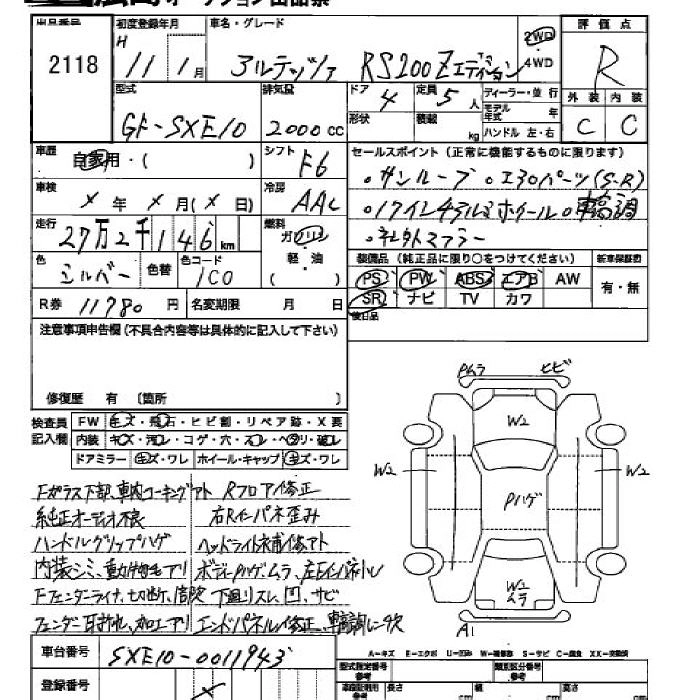 広島オークション出品票
出品番号 初度登録年月 車名・グレード 評価点
2118 H 11年 1月 アルテッツァ RS200 Zエディション 2WD 4WD R
型式 排気量 ドア 定員 ディーラー・並行 外装 内装
GF-SXE10 2000cc 4 5人 モデル年式 年 C C
形状 積載 kg ハンドル 左・右
車歴 自家用・( ) シフト F6 セールスポイント(正常に機能するものに限ります)
。サンルーフ 。エアロパーツ(S-R)
車検 × 年 × 月(× 日) 冷房 AAC
。17インチアルミホイール 。車高調
走行 27万2千146km 燃料 ガソリン 軽・油 ( )
。社外マフラー
色 シルバー 色替 色コード 1C0
装備品(純正品に限り○をつけてください) 新車保証書
PS PW ABS エアB AW 有・無
SR ナビ TV カワ
R券 11780円 名変期限 月 日
後日品
注意事項申告欄(不具合内容等は具体的に記入して下さい)
修復歴 有 〔箇所 〕
検査員記入欄 FW キズ・飛石・ヒビ割・リペア跡・X要
内装 キズ・汚レ・コゲ・穴・スレ・ヘタリ・破レ
ドアミラー キズ・ワレ ホイール・キャップ キズ・ワレ
Pムラ ヒビ
W2
W2 Pハゲ W2
W2 ムラ
A1
Fガラス下部、車内コーキングアト Rフロア修正
純正オーディオ不良 右Rインパネ歪み
ハンドルグリップハゲ ヘッドライト補修アト
内装シミ、動物毛アリ ボディPハゲ、ムラ、左Eインパネハレ
Fフェンダーライナ、切断、借欠 下廻リスレ、凹、サビ
フェンダー耳折れ、加工アリ エンドパネル修正、車高調ニ欠
A-キズ E-エクボ U-凹み W-補修跡 S-サビ C-腐食 XX-交換済
車台番号 SXE10-0011943
型式指定番号 類別区分番号
登録番号 ×
長さ cm 幅 cm 高さ cm